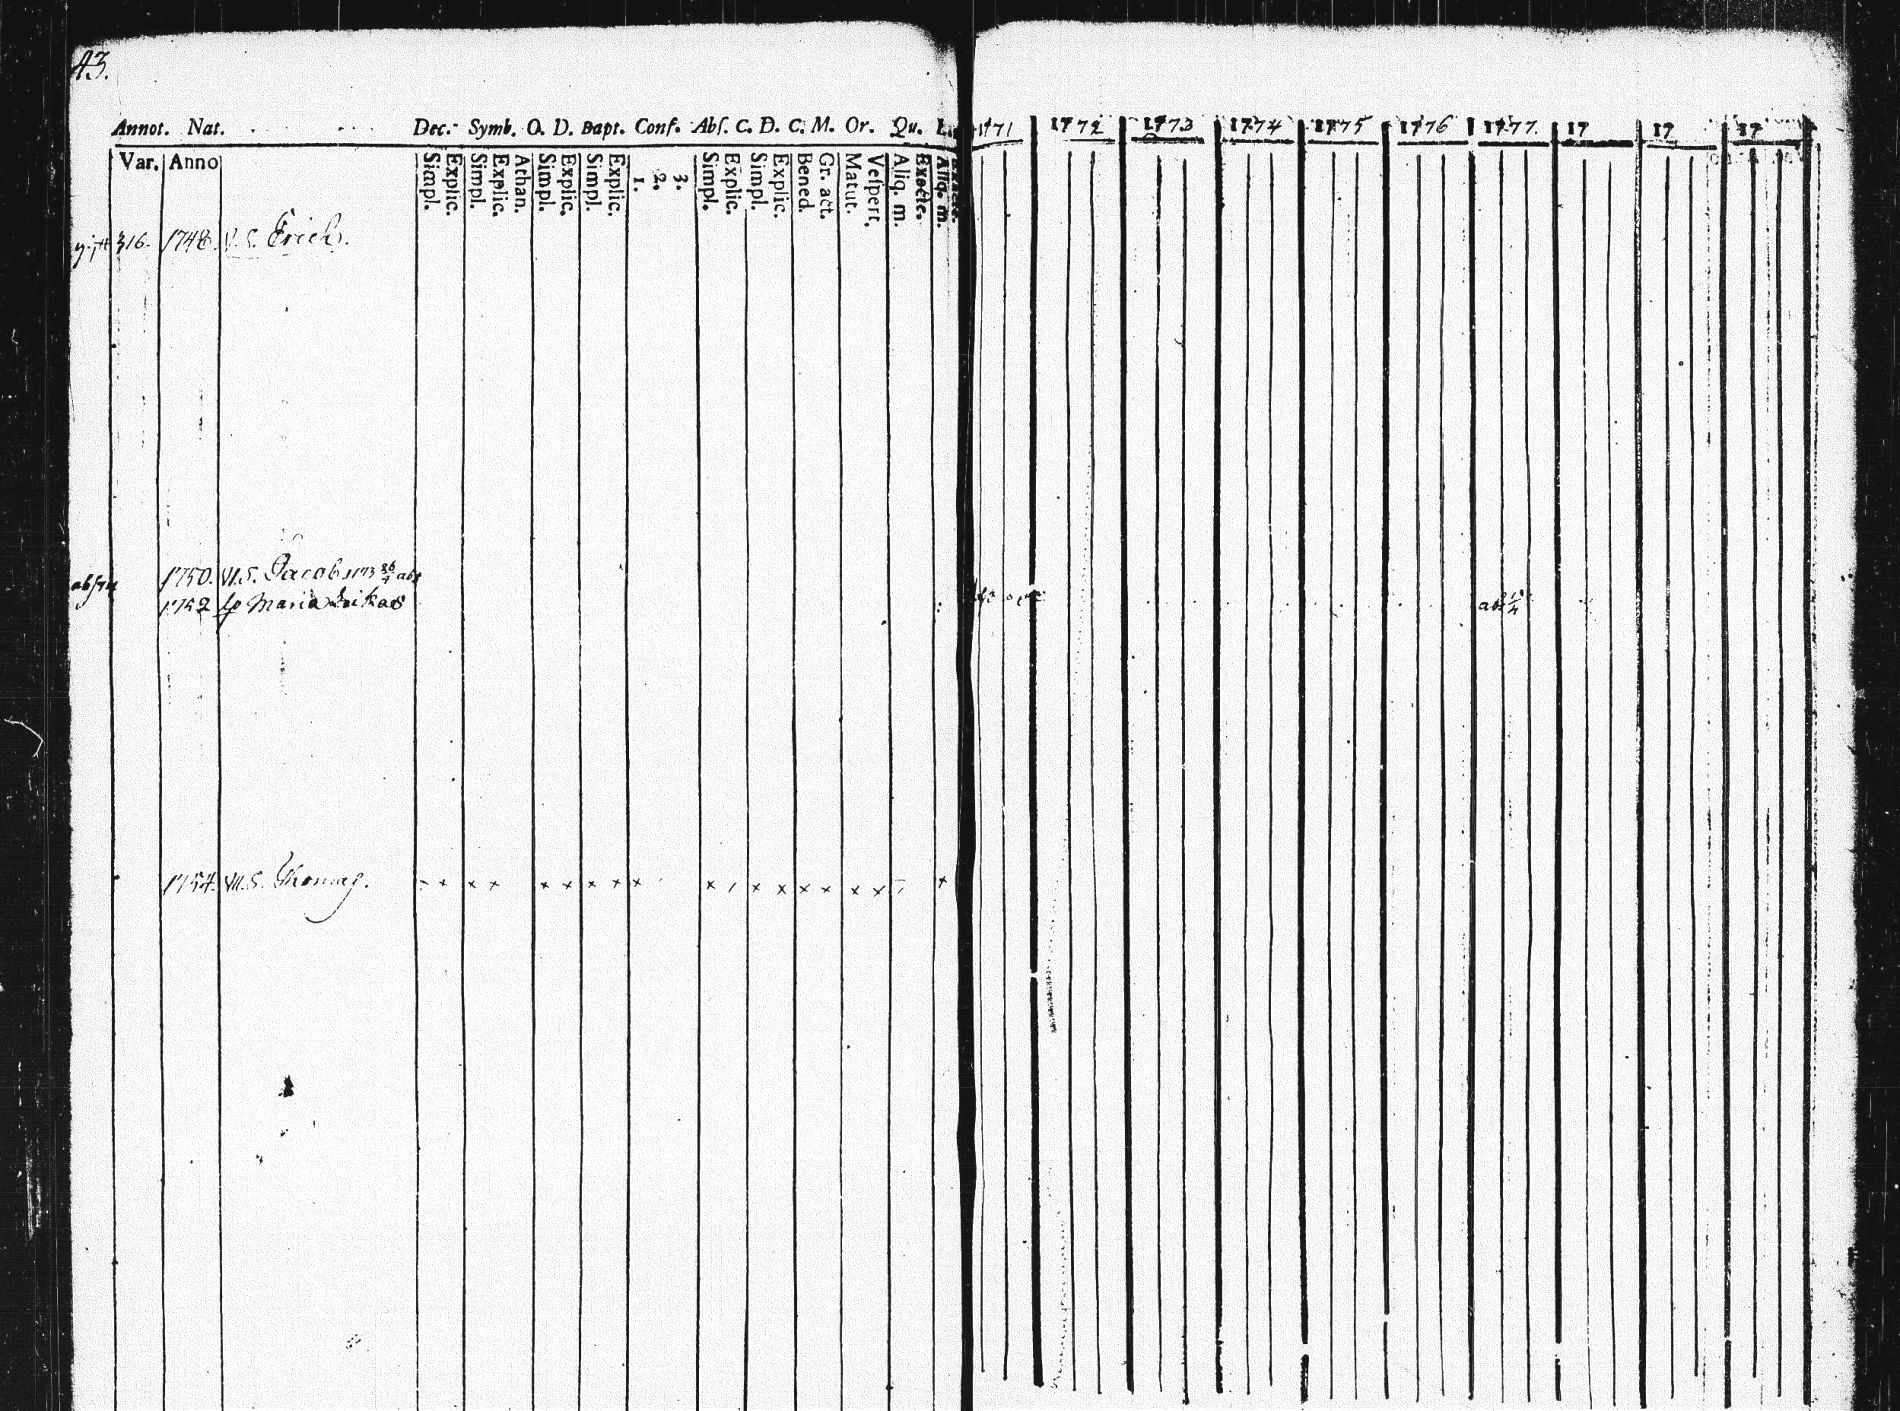 43.
Annot. Nat. Dec. Symb. O. D. Bapt. Conf. Abſ. C. D. C. M. Or. Qu. 1771 1772 1773 1774 1775 1776 1777. 17 17 17
Var. Anno Simpl. Explic. Simpl. Explic. Athan. Simpl. Explic. Simpl. Explic. 1. 2. 3. Simpl. Explic. Simpl. Explic. Bened. Gr. act. Matut. Veſpert. Aliq. m. Exacte. Aliq. m. Exacte.
gift 316. 1748. V. S. Erich.
1750. VI. S. Jacob
1752 Maria
1754. VII. S. Thomas. × × × × × × × × × × × × × × × × ×